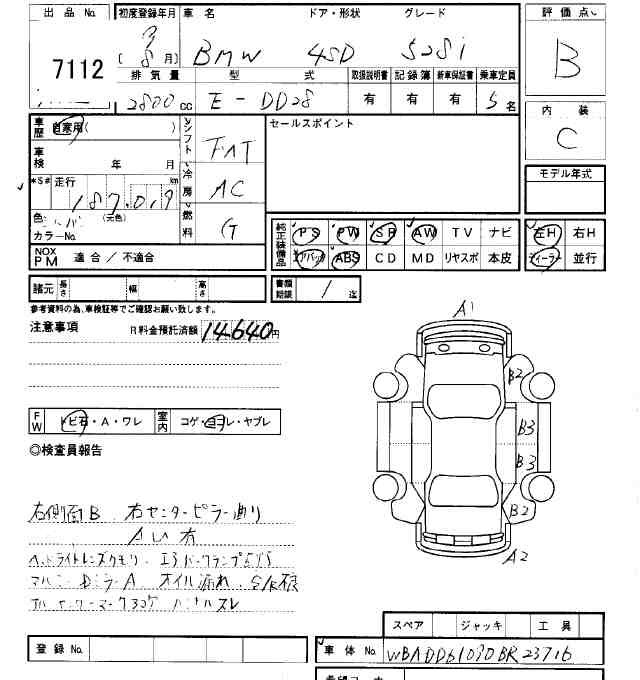 出品No. 初度登録年月 車名 ドア・形状 グレード 評価点
7112 9 (8月) BMW 4SD 528i B
排気量 型式 取扱説明書 記録簿 新車保証書 乗車定員
2800cc E-DD28 有 有 有 5名 内装
C
車歴 自家用( ) シフト FAT セールスポイント
車検 年 月
モデル年式
*S# 走行 187,019 km 冷房 AC
色 (元色)
カラーNo. 燃料 G
純正装備品 PS PW SR AW TV ナビ 左H 右H
エアバッグ ABS CD MD リヤスポ 本皮 ディーラー 並行
NOX PM 適合/不適合
諸元 長さ 幅 高さ 書類期限 / 迄
参考資料の為、車検証等でご確認お願い致します。
注意事項 R料金預託済額 14,640円
A1
B2
FW トビ石・A・ワレ 室内 コゲ・ヨゴレ・ヤブレ
B3
◎検査員報告
B3
B2
右側面B 右センターピラー曲り
A2
ヘッドライトレンズクモリ
オイル漏れ
スペア ジャッキ 工具
登録No. 車体No. WBADD61090BR23716
希望コーナー